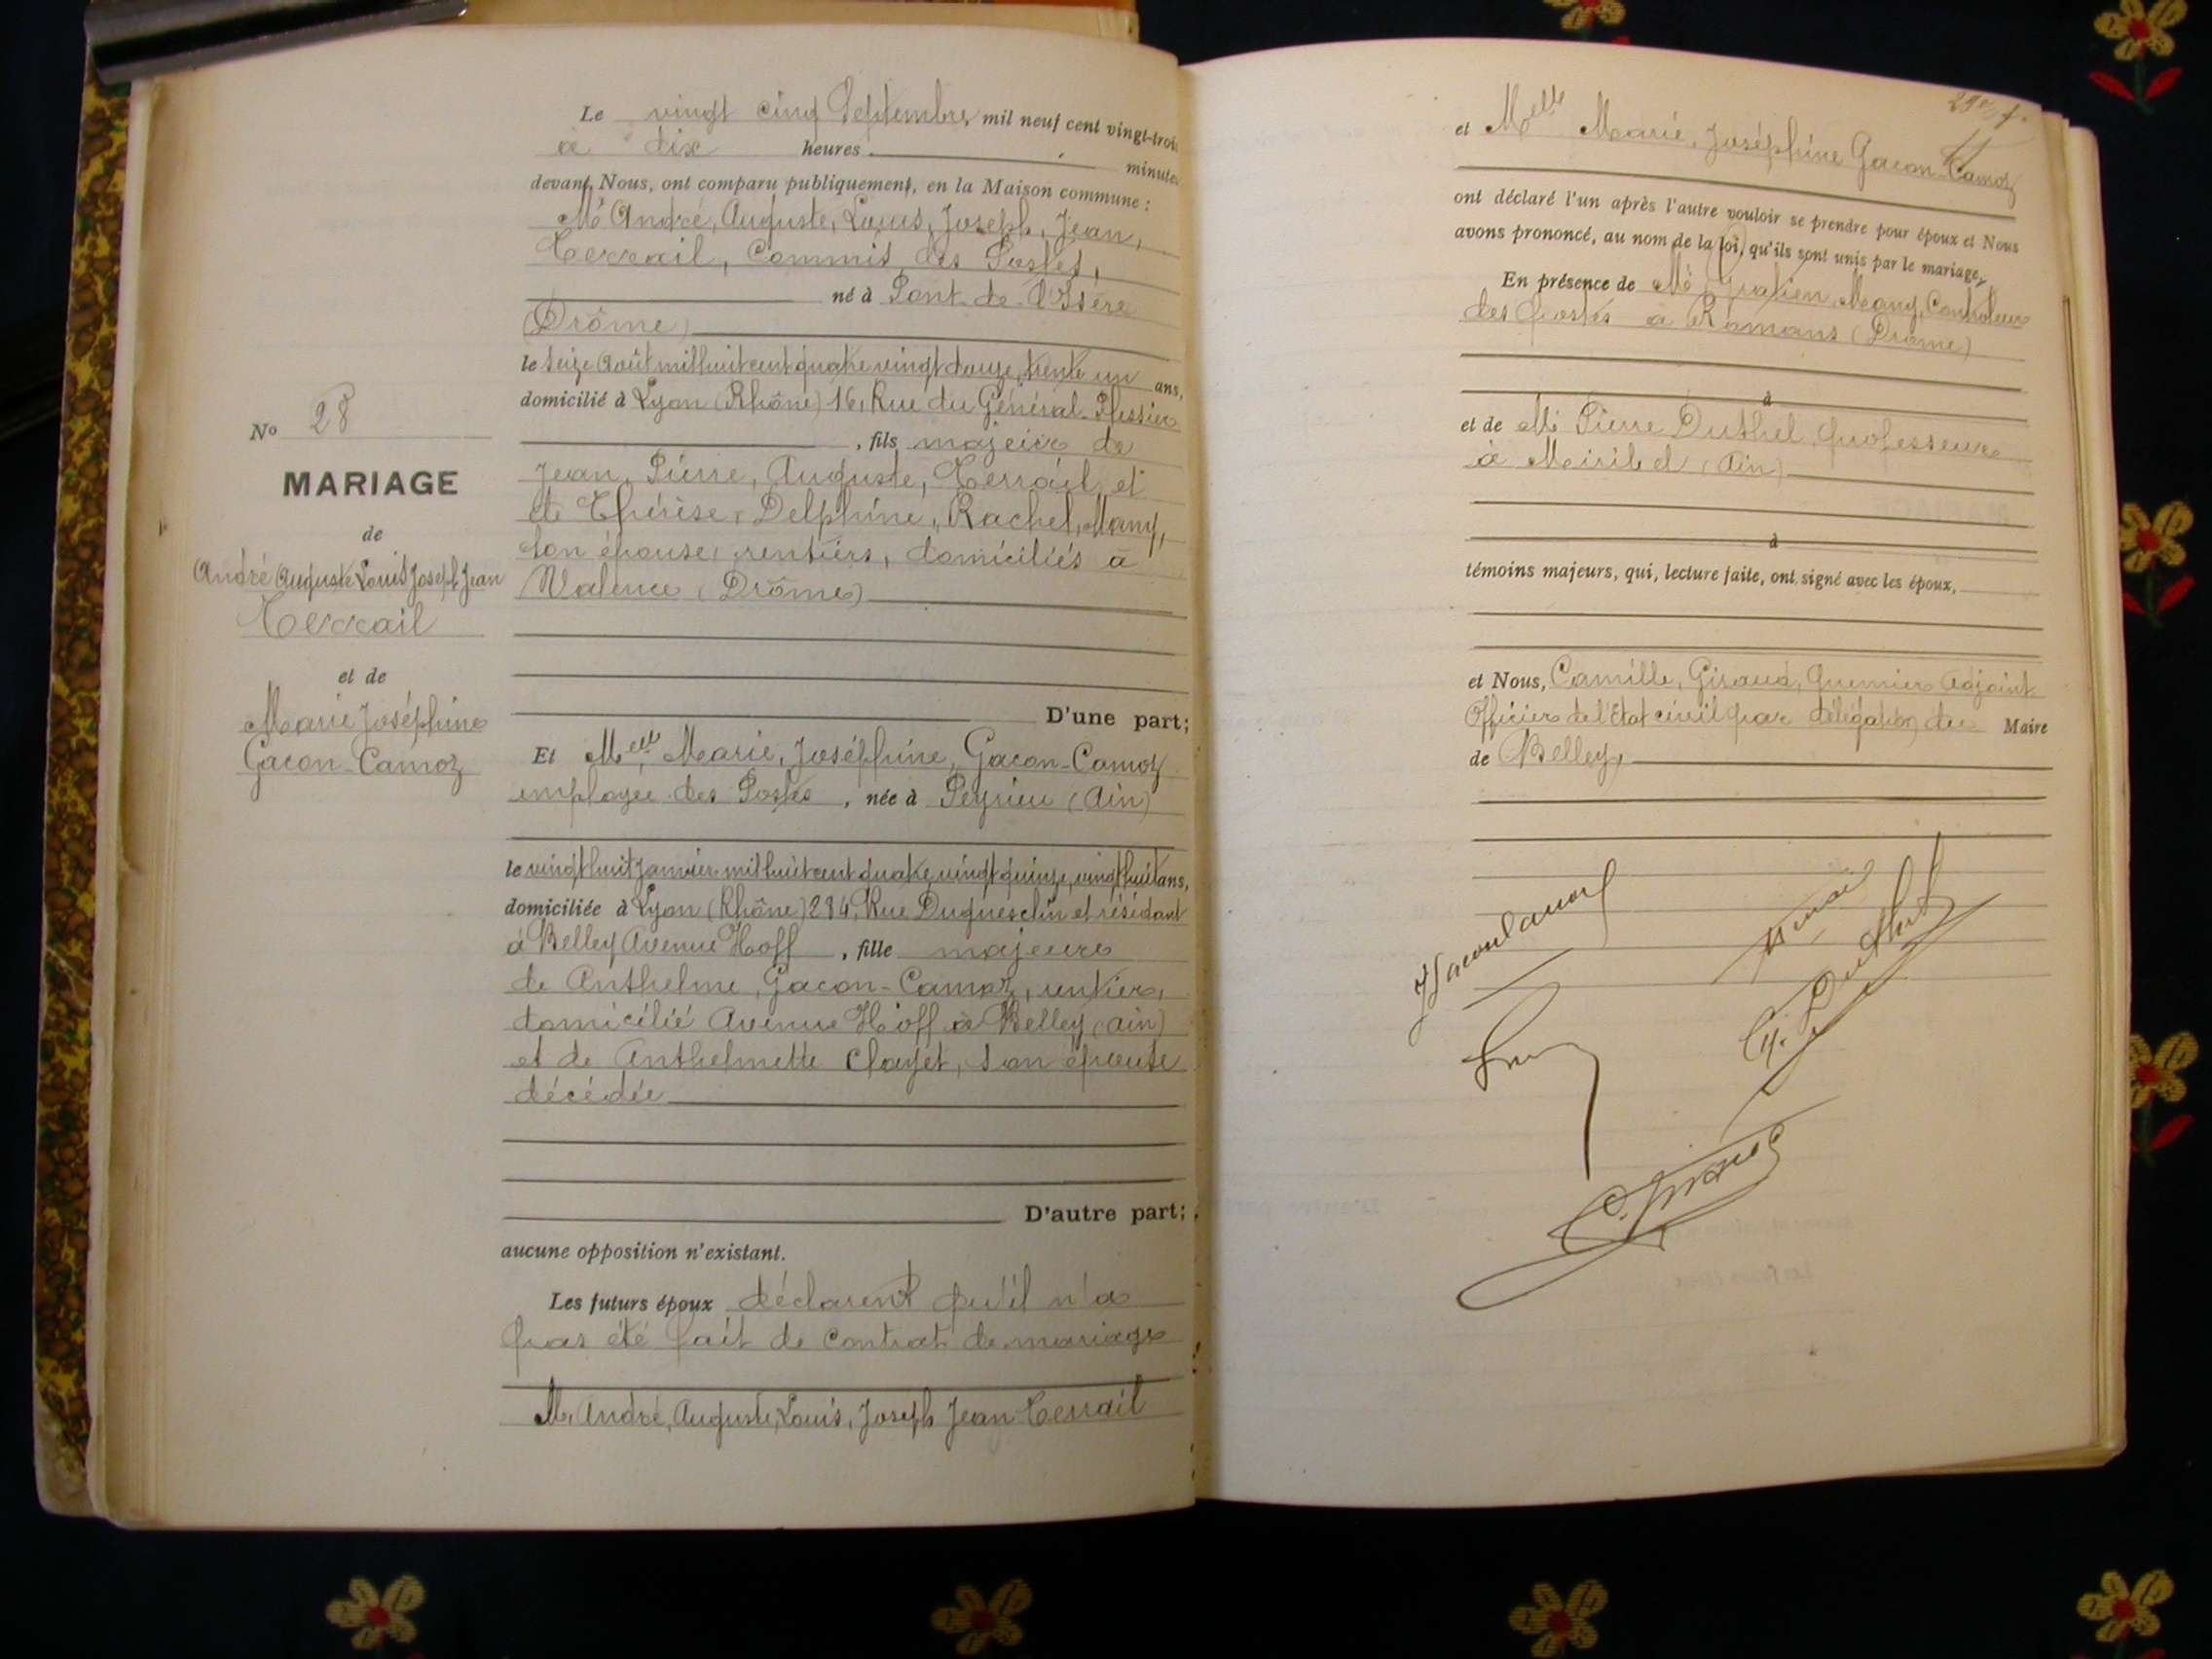 Le vingt cinq Septembre, mil neuf cent vingt-trois
à dix heures minutes
devant Nous, ont comparu publiquement, en la Maison commune :
Mr André, Auguste, Louis, Joseph, Jean,
Terrail, Commis des Postes,
né à Pont-de-l'Isère
(Drôme)
le seize Août mil huit cent quatre vingt douze, trente un ans,
domicilié à Lyon (Rhône) 16, Rue du Général Plessier
, fils majeur de
Jean, Pierre, Auguste, Terrail et
de Thérèse, Delphine, Rachel, Many,
son épouse, rentiers, domiciliés à
Valence (Drôme)
D'une part;
No 28
MARIAGE
de
André Auguste Louis Joseph Jean
Terrail
et de
Marie Joséphine
Gacon-Camoz
Et Melle Marie, Joséphine, Gacon-Camoz
employée des Postes , née à Peyrieu (Ain)
le vingt huit Janvier mil huit cent quatre vingt quinze, vingt huit ans,
domiciliée à Lyon (Rhône) 284, Rue Duguesclin et résidant
à Belley Avenue Hoff , fille majeure
de Anthelme, Gacon-Camoz, rentier,
domicilié Avenue Hoff à Belley (Ain)
et de Anthelmette Clayet, son épouse
décédée
D'autre part;
aucune opposition n'existant.
Les futurs époux déclarent qu'il n'a
pas été fait de contrat de mariage
M. André, Auguste, Louis, Joseph Jean Terrail
et Melle Marie, Joséphine Gacon-Camoz
ont déclaré l'un après l'autre vouloir se prendre pour époux et Nous
avons prononcé, au nom de la loi, qu'ils sont unis par le mariage,
En présence de Mr Many, Contrôleur
des postes à Romans (Drôme)
à
et de Mr Pierre Duthel, professeur
à Miribel (Ain)
à
témoins majeurs, qui, lecture faite, ont signé avec les époux,
et Nous, Camille, Giraud, premier adjoint
Officier de l'Etat civil par délégation du Maire
de Belley,
JGaconcamoz
Terrail
Duthel
C. Giraud